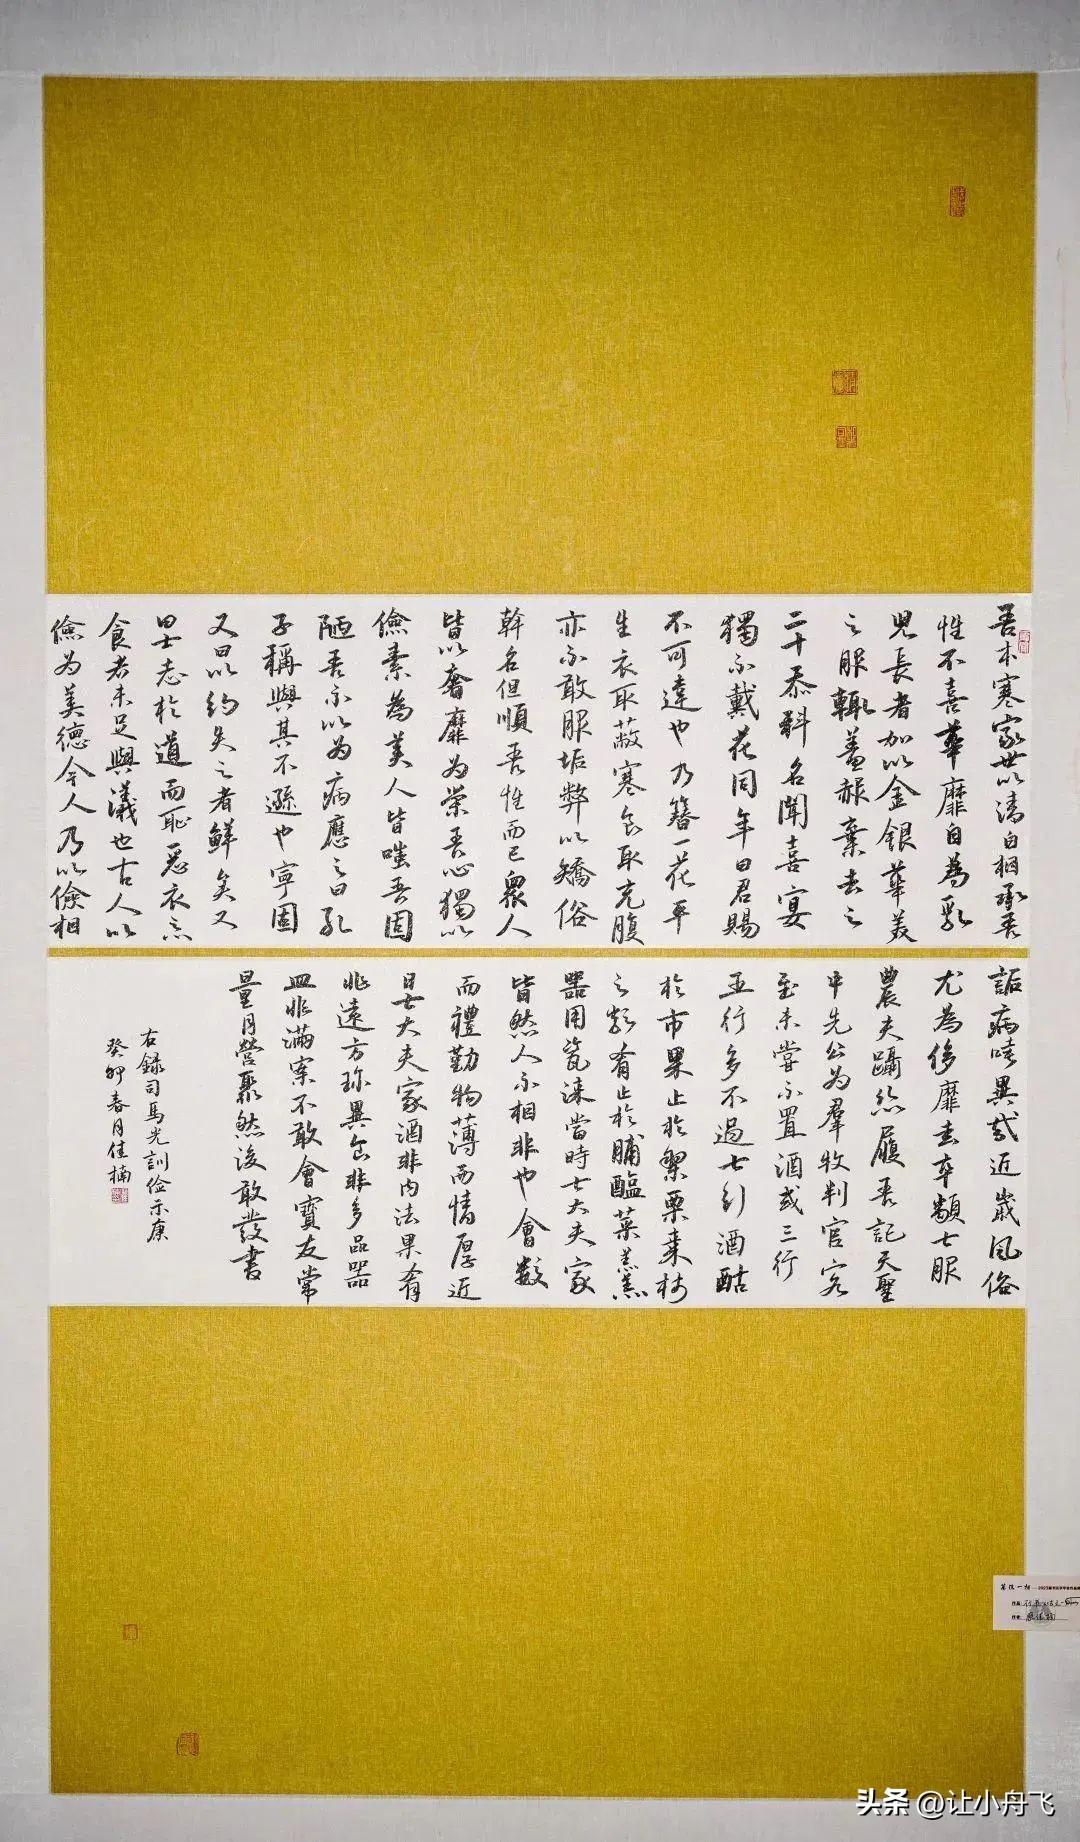 吾本寒家世以清白相承吾
性不喜華靡自為乳
兒長者加以金銀華美
之服輒羞赧棄去之
二十忝科名聞喜宴
獨不戴花同年曰君賜
不可違也乃簪一花平
生衣取蔽寒食取充腹
亦不敢服垢弊以矯俗
幹名但順吾性而已衆人
皆以奢靡為榮吾心獨以
儉素為美人皆嗤吾固
陋吾不以為病應之曰孔
子稱與其不遜也寧固
又曰以約失之者鮮矣又
曰士志於道而恥惡衣惡
食者未足與議也古人以
儉為美德今人乃以儉相
詬病嘻異哉近歲風俗
尤為侈靡走卒類士服
農夫躡絲履吾記天聖
中先公為羣牧判官客
至未嘗不置酒或三行
五行多不過七行酒酤
於市果止於梨栗棗柿
之類肴止於脯醢菜羹
器用瓷漆當時士大夫家
皆然人不相非也會數
而禮勤物薄而情厚近
日士大夫家酒非內法果肴
非遠方珍異食非多品器
皿非滿案不敢會賓友常
量月營聚然後敢發書
右錄司馬光訓儉示康
癸卯春月佳楠
头条 @让小舟飞